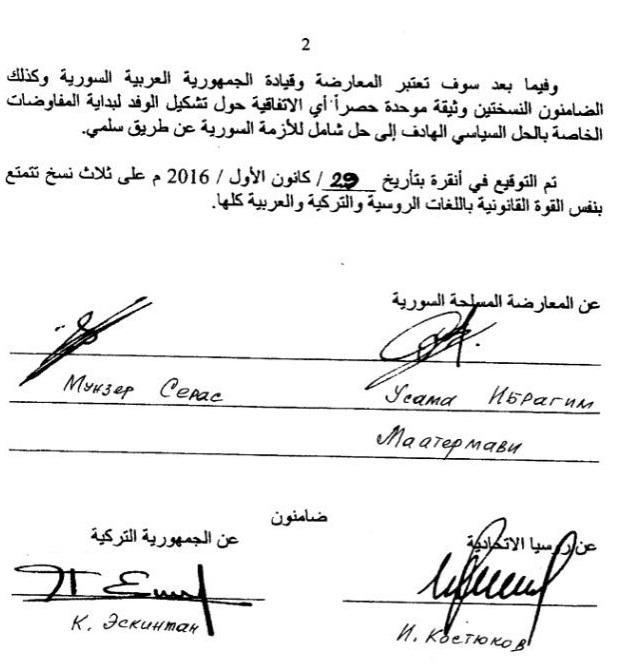 2
وفيما بعد سوف تعتبر المعارضة وقيادة الجمهورية العربية السورية وكذلك
الضامنون النسختين وثيقة موحدة حصراً أي الاتفاقية حول تشكيل الوفد لبداية المفاوضات
الخاصة بالحل السياسي الهادف إلى حل شامل للأزمة السورية عن طريق سلمي.
تم التوقيع في أنقرة بتأريخ 29 / كانون الأول / 2016 م على ثلاث نسخ تتمتع
بنفس القوة القانونية باللغات الروسية والتركية والعربية كلها.
عن المعارضة المسلحة السورية
Мунзер Серас Усама Ибрагим
Маатермави
ضامنون
عن روسيا الاتحادية عن الجمهورية التركية
К. Эскинтан И. Костюков